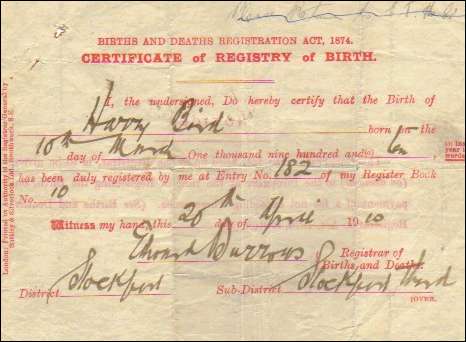 BIRTHS AND DEATHS REGISTRATION ACT, 1874.
CERTIFICATE of REGISTRY of BIRTH.
I, the undersigned, Do hereby certify that the Birth of
Harry Bird born on the
10th day of March One thousand nine hundred and(a) ten
has been duly registered by me at Entry No. 182 of my Register Book
No. 10
Witness my hand this 20th day of April 1910
Burrows Registrar of
Births and Deaths.
District Stockport Sub-District Stockport
[OVER.